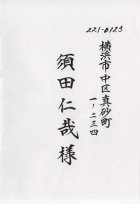 221-0123
横浜市中区真砂町
一ー二三四
須田仁哉様